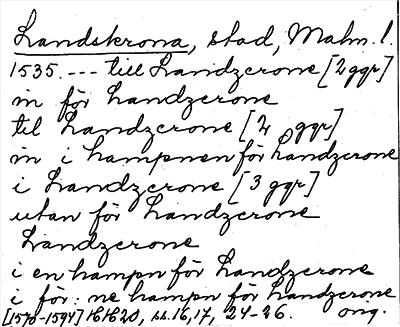 Landskrona, stad, Malm. l.
1535. --- till Landzcrone [2 ggr]
in för Landzcrone
til Landzcrone [2 ggr]
in i hampnen för Landzcrone
i Landzcrone [3 ggr]
utan för Landzcrone
Landzcrone
i en hampn för Landzcrone
i för: ne hampn för Landzcrone
[1570-1594] HH20, ss. 16, 17, 24-26. orig.